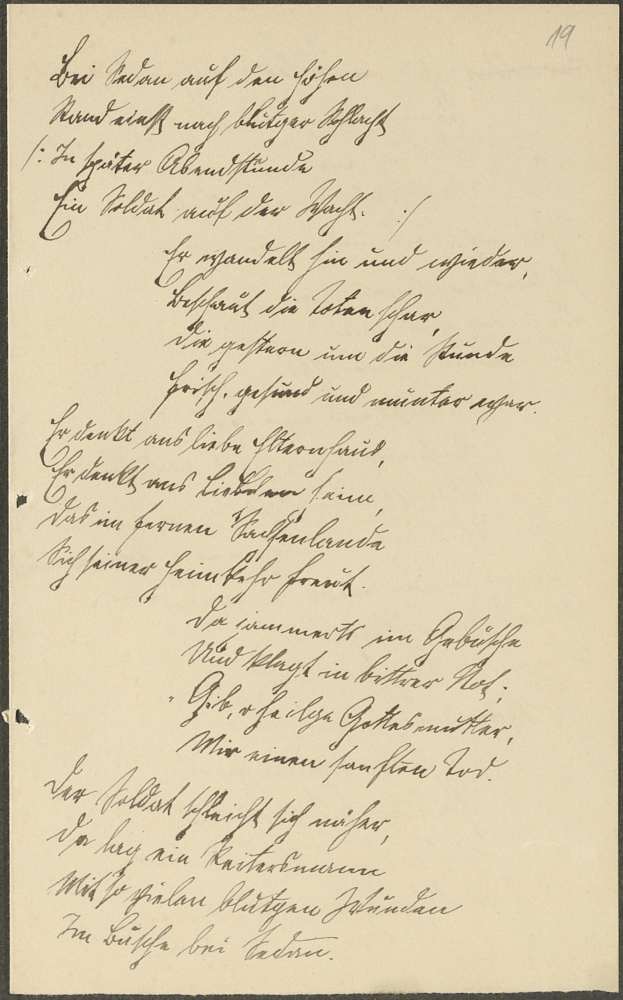 19
Bei Sedan auf den Höhen
Stand einst nach blutger Schlacht
/: In später Abendstunde
Ein Soldat auf der Wacht. :/
Er wandelt hin und wieder,
Beschaut die Totenschar,
Die gestern um die Stunde
Frisch, gesund und munter war.
Er denkt ans liebe Elternhaus,
Er denkt ans heim,
Das im fernen Sachsenlande
Sich seiner Heimkehr freut.
Da jammerts im Gebüsche
Und klagt in bittrer Not;
"Gib, o heilge Gottesmutter,
Mir einen sanften Tod.
Der Soldat schleicht sich näher,
Da lag ein Reitersmann
Mit so vielen blutgen Wunden
Im Busche bei Sedan.